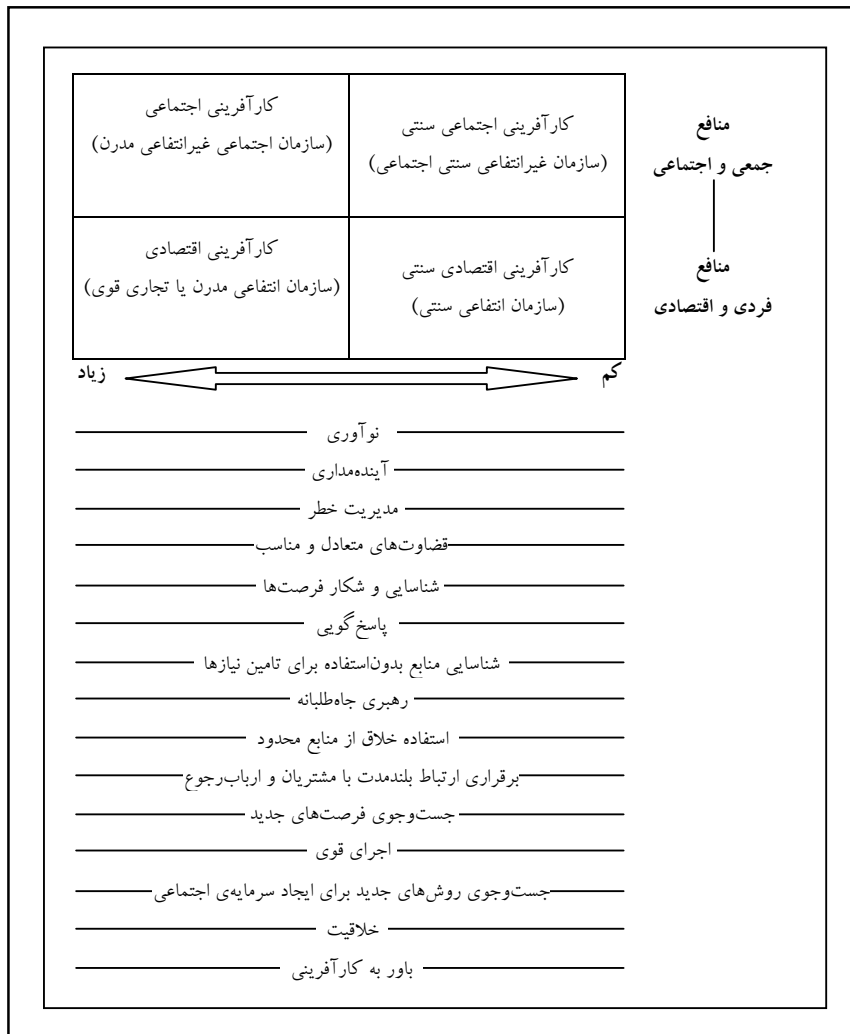 منافع
جمعی و اجتماعی
کارآفرینی اجتماعی سنتی
(سازمان غیرانتفاعی سنتی اجتماعی)
کارآفرینی اجتماعی
(سازمان اجتماعی غیرانتفاعی مدرن)
منافع
فردی و اقتصادی
کارآفرینی اقتصادی سنتی
(سازمان انتفاعی سنتی)
کارآفرینی اقتصادی
(سازمان انتفاعی مدرن یا تجاری قوی)
کم
زیاد
نوآوری
آینده‌مداری
مدیریت خطر
قضاوت‌های متعادل و مناسب
شناسایی و شکار فرصت‌ها
پاسخ‌گویی
شناسایی منابع بدون‌استفاده برای تامین نیازها
رهبری جاه‌طلبانه
استفاده خلاق از منابع محدود
برقراری ارتباط بلندمدت با مشتریان و ارباب‌رجوع
جست‌وجوی فرصت‌های جدید
اجرای قوی
جست‌وجوی روش‌های جدید برای ایجاد سرمایه‌ی اجتماعی
خلاقیت
باور به کارآفرینی